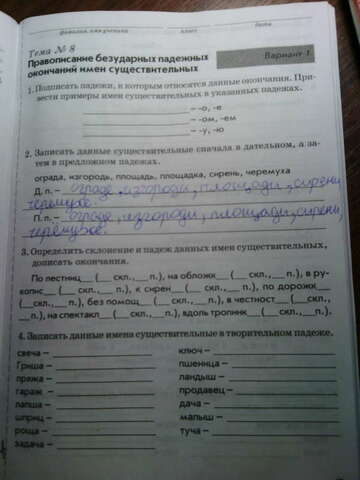 Фамилия, имя ученика класс дата
Тема № 8
Правописание безударных падежных
окончаний имен существительных
Вариант 1
1. Подписать падежи, к которым относятся данные окончания. При-
вести примеры имен существительных в указанных падежах.
– -о, -е
– -ом, -ем
– -у, -ю
2. Записать данные существительные сначала в дательном, а за-
тем в предложном падежах.
ограда, изгородь, площадь, площадка, сирень, черемуха
Д. п.– ограде, изгороди, площади, сирени,
черемухе.
П. п.– ограде, изгороди, площади, сирени,
черемухе.
3. Определить склонение и падеж данных имен существительных,
дописать окончания.
По лестниц__ (__ скл.,__ п.), на обложк__ (__ скл.,__ п.), в ру-
копис__ (__ скл.,__ п.), к сирен__ (__ скл.,__ п.), по дорожк__
(__скл.,__ п.), без помощ__ (__ скл.,__ п.), в честност__ (__скл.,__
п.), на спектакл__ (__ скл.,__ п.), вдоль тропинк__ (__ скл.,__ п.).
4. Записать данные имена существительные в творительном падеже.
свеча – ключ –
Гриша – пшеница –
пряжа – ландыш –
гараж – продавец –
лапша – дача –
шприц – малыш –
роща – туча –
задача –